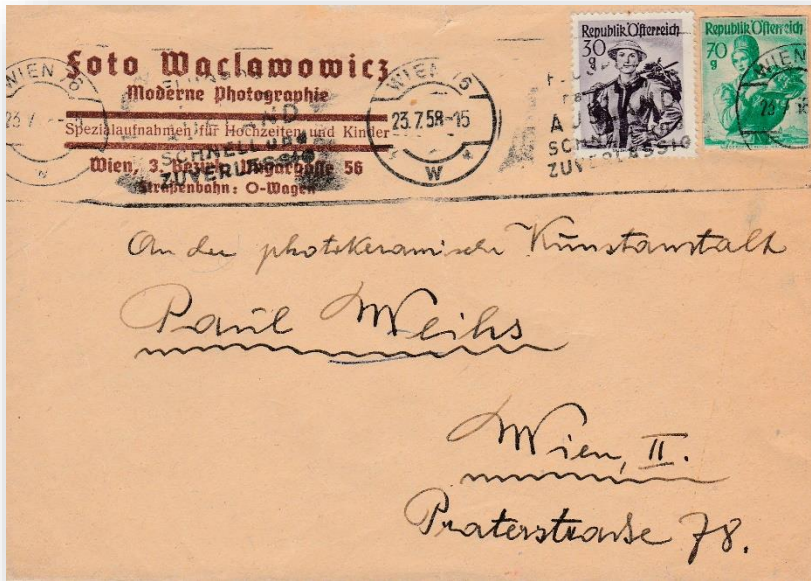 Foto Waclawowicz
Moderne Photographie
Spezialaufnahmen für Hochzeiten und Kinder
Wien, 3. Bezirk, Ungargasse 56
Straßenbahn: O-Wagen
WIEN
23.7
AUSLAND
SCHNELL UND
ZUVERLÄSSIG
WIEN
23.7.58-15
W
AUSLAND
SCHNELL
ZUVERLÄSSIG
Republik Österreich
30
g
Republik Österreich
70
g
WIEN
An der photokeramische Kunstanstalt
Paul Weihs
Wien, II.
Praterstrasse 78.